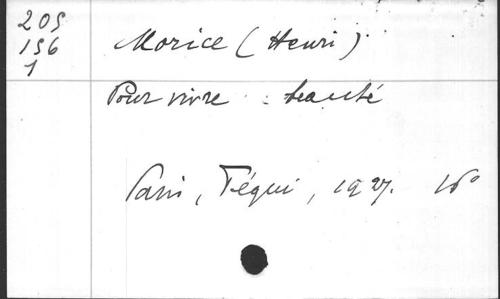 205
156
1
Morice (Henri)
Pour vivre : beauté
Paris, Téqui, 1927. 16°